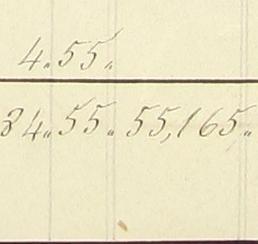 4.55.
84.55. 55,165.